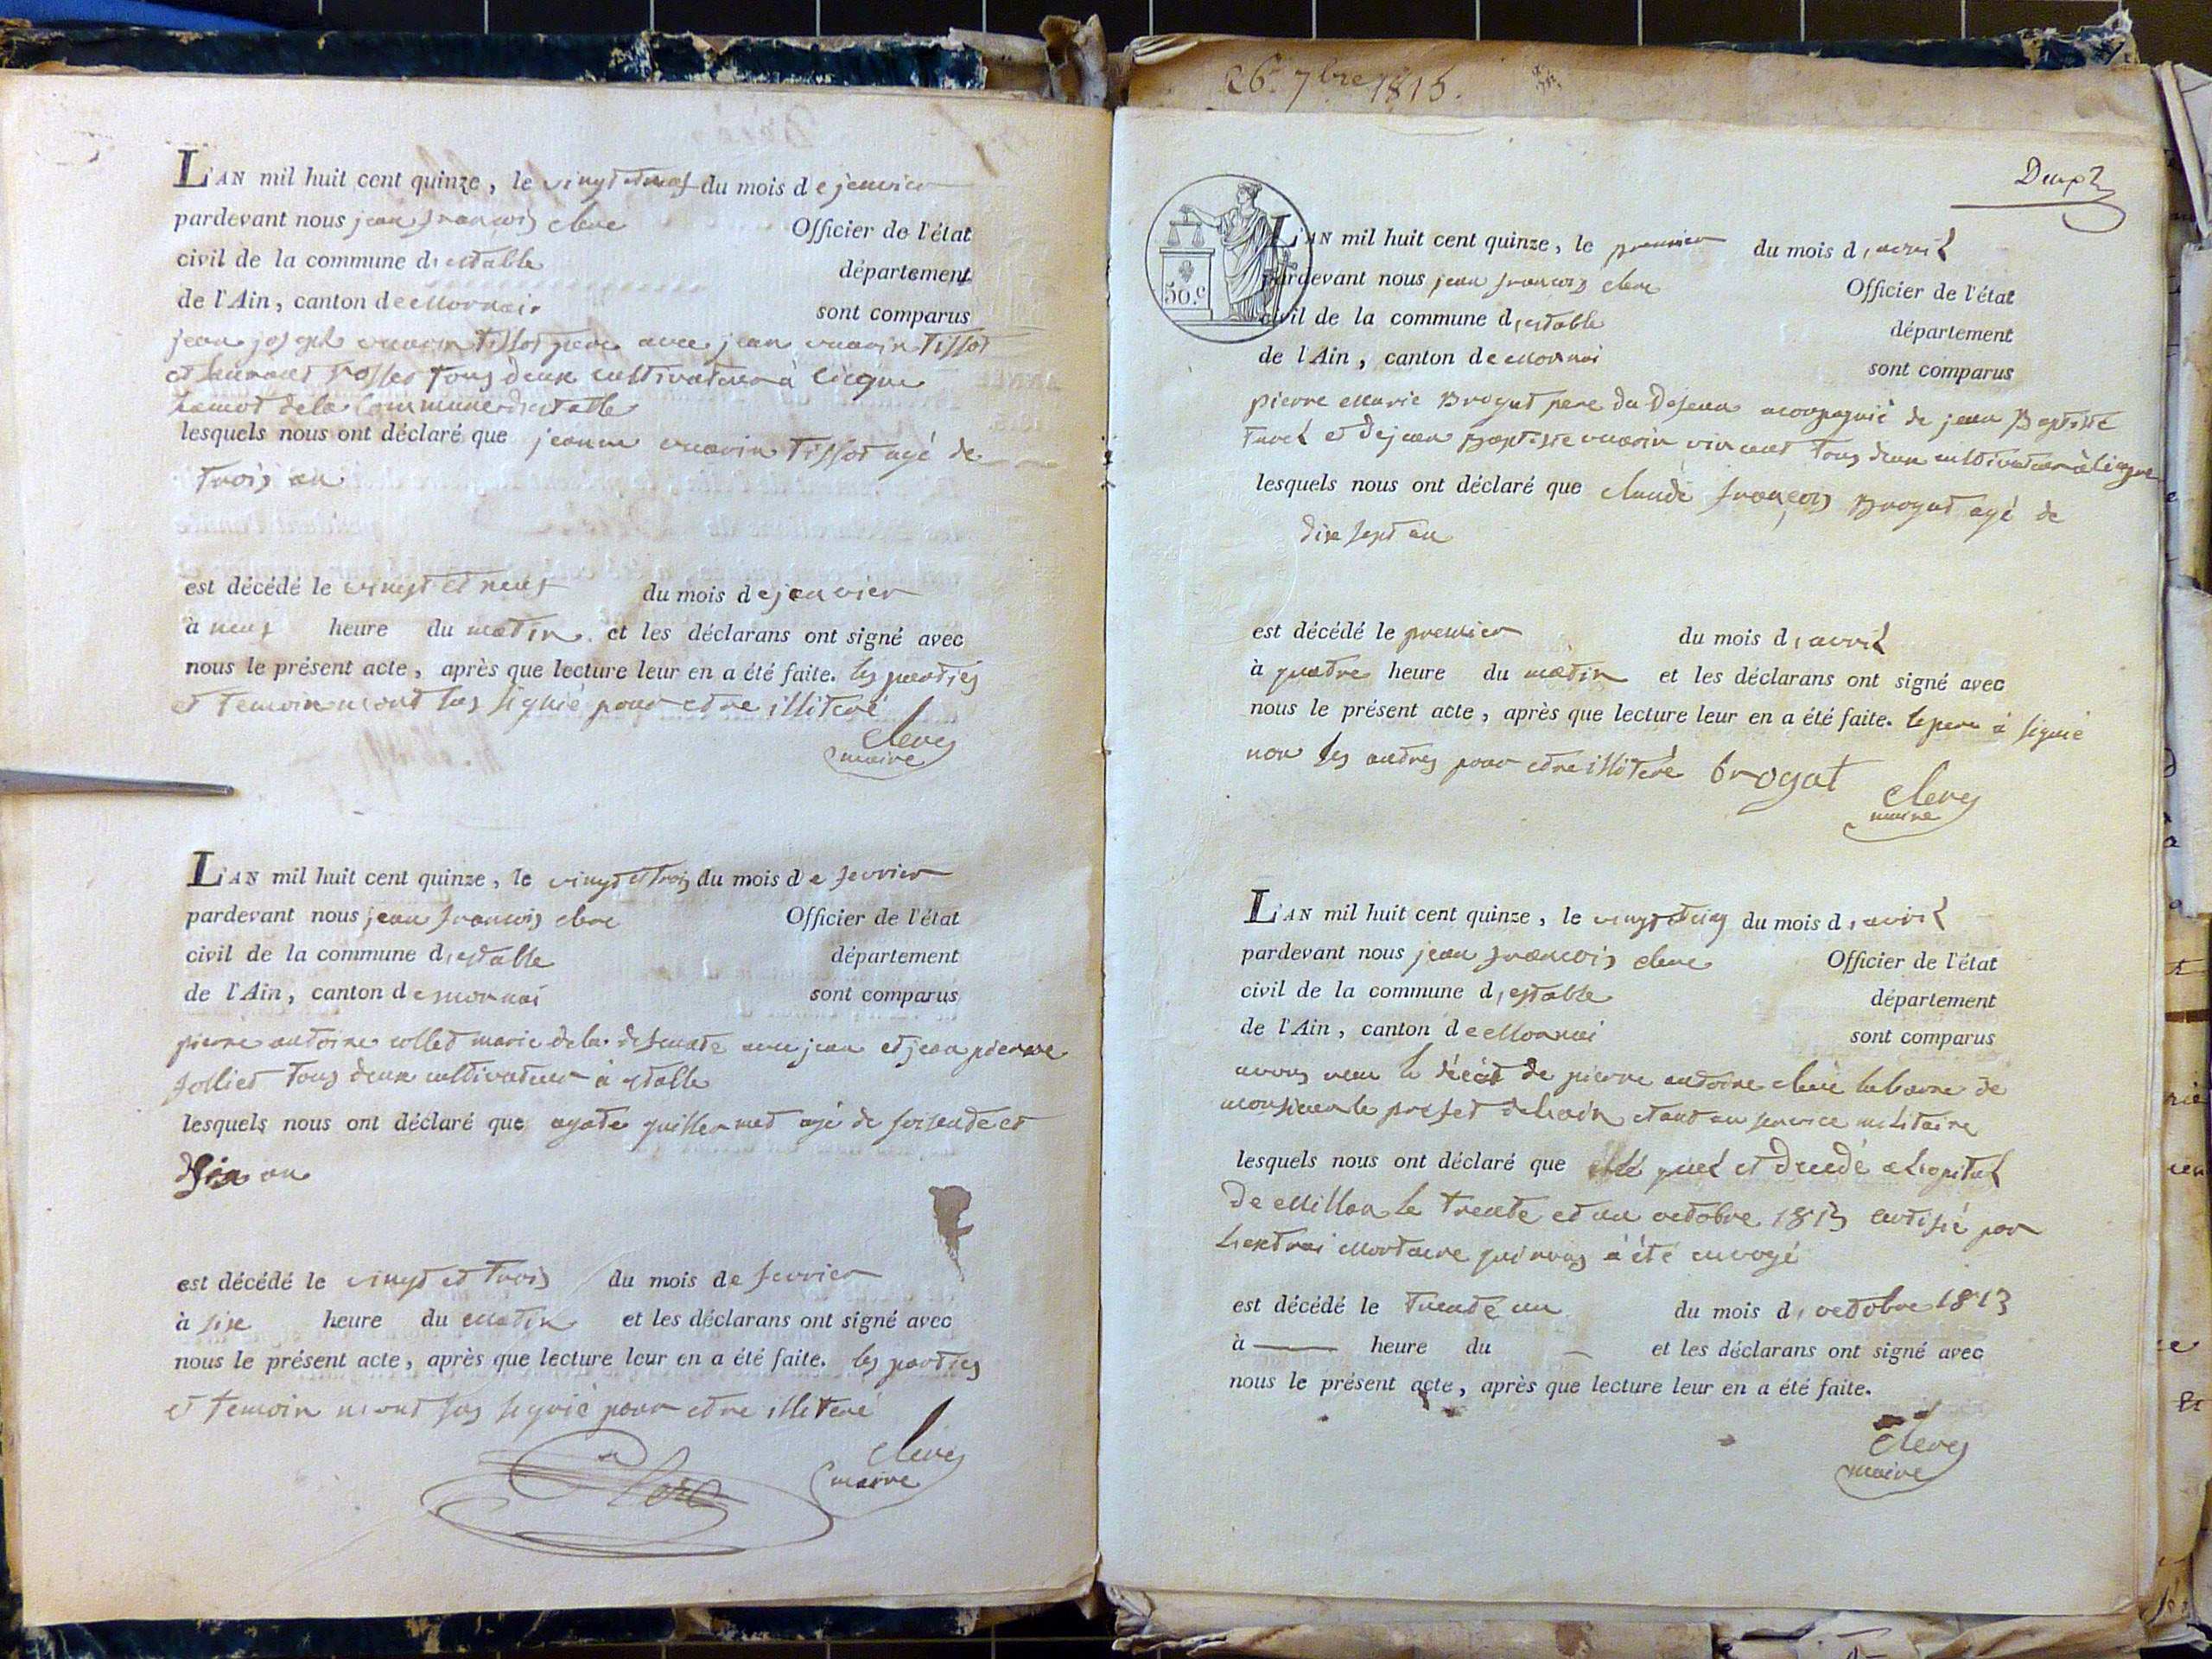 L'AN mil huit cent quinze, le vingt et neuf du mois de jenvier
pardevant nous jean francois clerc Officier de l'état
civil de la commune d'estable département
de l'Ain, canton de Mornai sont comparus
jean joseph vuarin tissot pere avec jean vuarin Tissot
et tous deux cultivateur à
hamot de la commune d'estable
lesquels nous ont déclaré que jeanne vuarin Tissot agé de
trois an
est décédé le vingt et neuf du mois de jenvier
à neuf heure du matin et les déclarans ont signé avec
nous le présent acte, après que lecture leur en a été faite. les parties
et temoin n'ont pas signié pour etre illiteré
clerc
maire
L'AN mil huit cent quinze, le vingt et trois du mois de fevrier
pardevant nous jean francois clerc Officier de l'état
civil de la commune d'estable département
de l'Ain, canton de mornai sont comparus
pierre antoine collet marie de la defunte avec jean et jean pierre
jolliet tous deux cultivateur à estable
lesquels nous ont déclaré que agate guillermet agé de soisente et
an
est décédé le vingt et trois du mois de fevrier
à sixe heure du matin et les déclarans ont signé avec
nous le présent acte, après que lecture leur en a été faite. les parties
et temoin n'ont pas signié pour etre illiteré
clerc
maire
26 7bre 1815.
50.c
L'AN mil huit cent quinze, le premier du mois d'avril
pardevant nous jean francois clerc Officier de l'état
civil de la commune d'estable département
de l'Ain, canton de Mornai sont comparus
pierre Marie Brogat pere du defeun acompagnié de jean Baptiste
turel et de jean Baptiste vuarin vincent tous deux cultivateur à
lesquels nous ont déclaré que claude françois Brogat agé de
dixe sept an
est décédé le premier du mois d'avril
à quatre heure du matin et les déclarans ont signé avec
nous le présent acte, après que lecture leur en a été faite. le pere à signié
non les autres pour etre illiteré brogat
clerc
maire
L'AN mil huit cent quinze, le vingt et cinq du mois d'avril
pardevant nous jean francois clerc Officier de l'état
civil de la commune d'estable département
de l'Ain, canton de Mornai sont comparus
avons veu le décét de pierre antoine clerc de
monsieur le prefet de lain etant au service militaire
lesquels nous ont déclaré que quel et decedé a lopital
de Millan le trente et un octobre 1813 certifié par
lextrai Mortuere qui nous à été envoyé
est décédé le trente un du mois d'octobre 1813
à heure du et les déclarans ont signé avec
nous le présent acte, après que lecture leur en a été faite.
clerc
maire